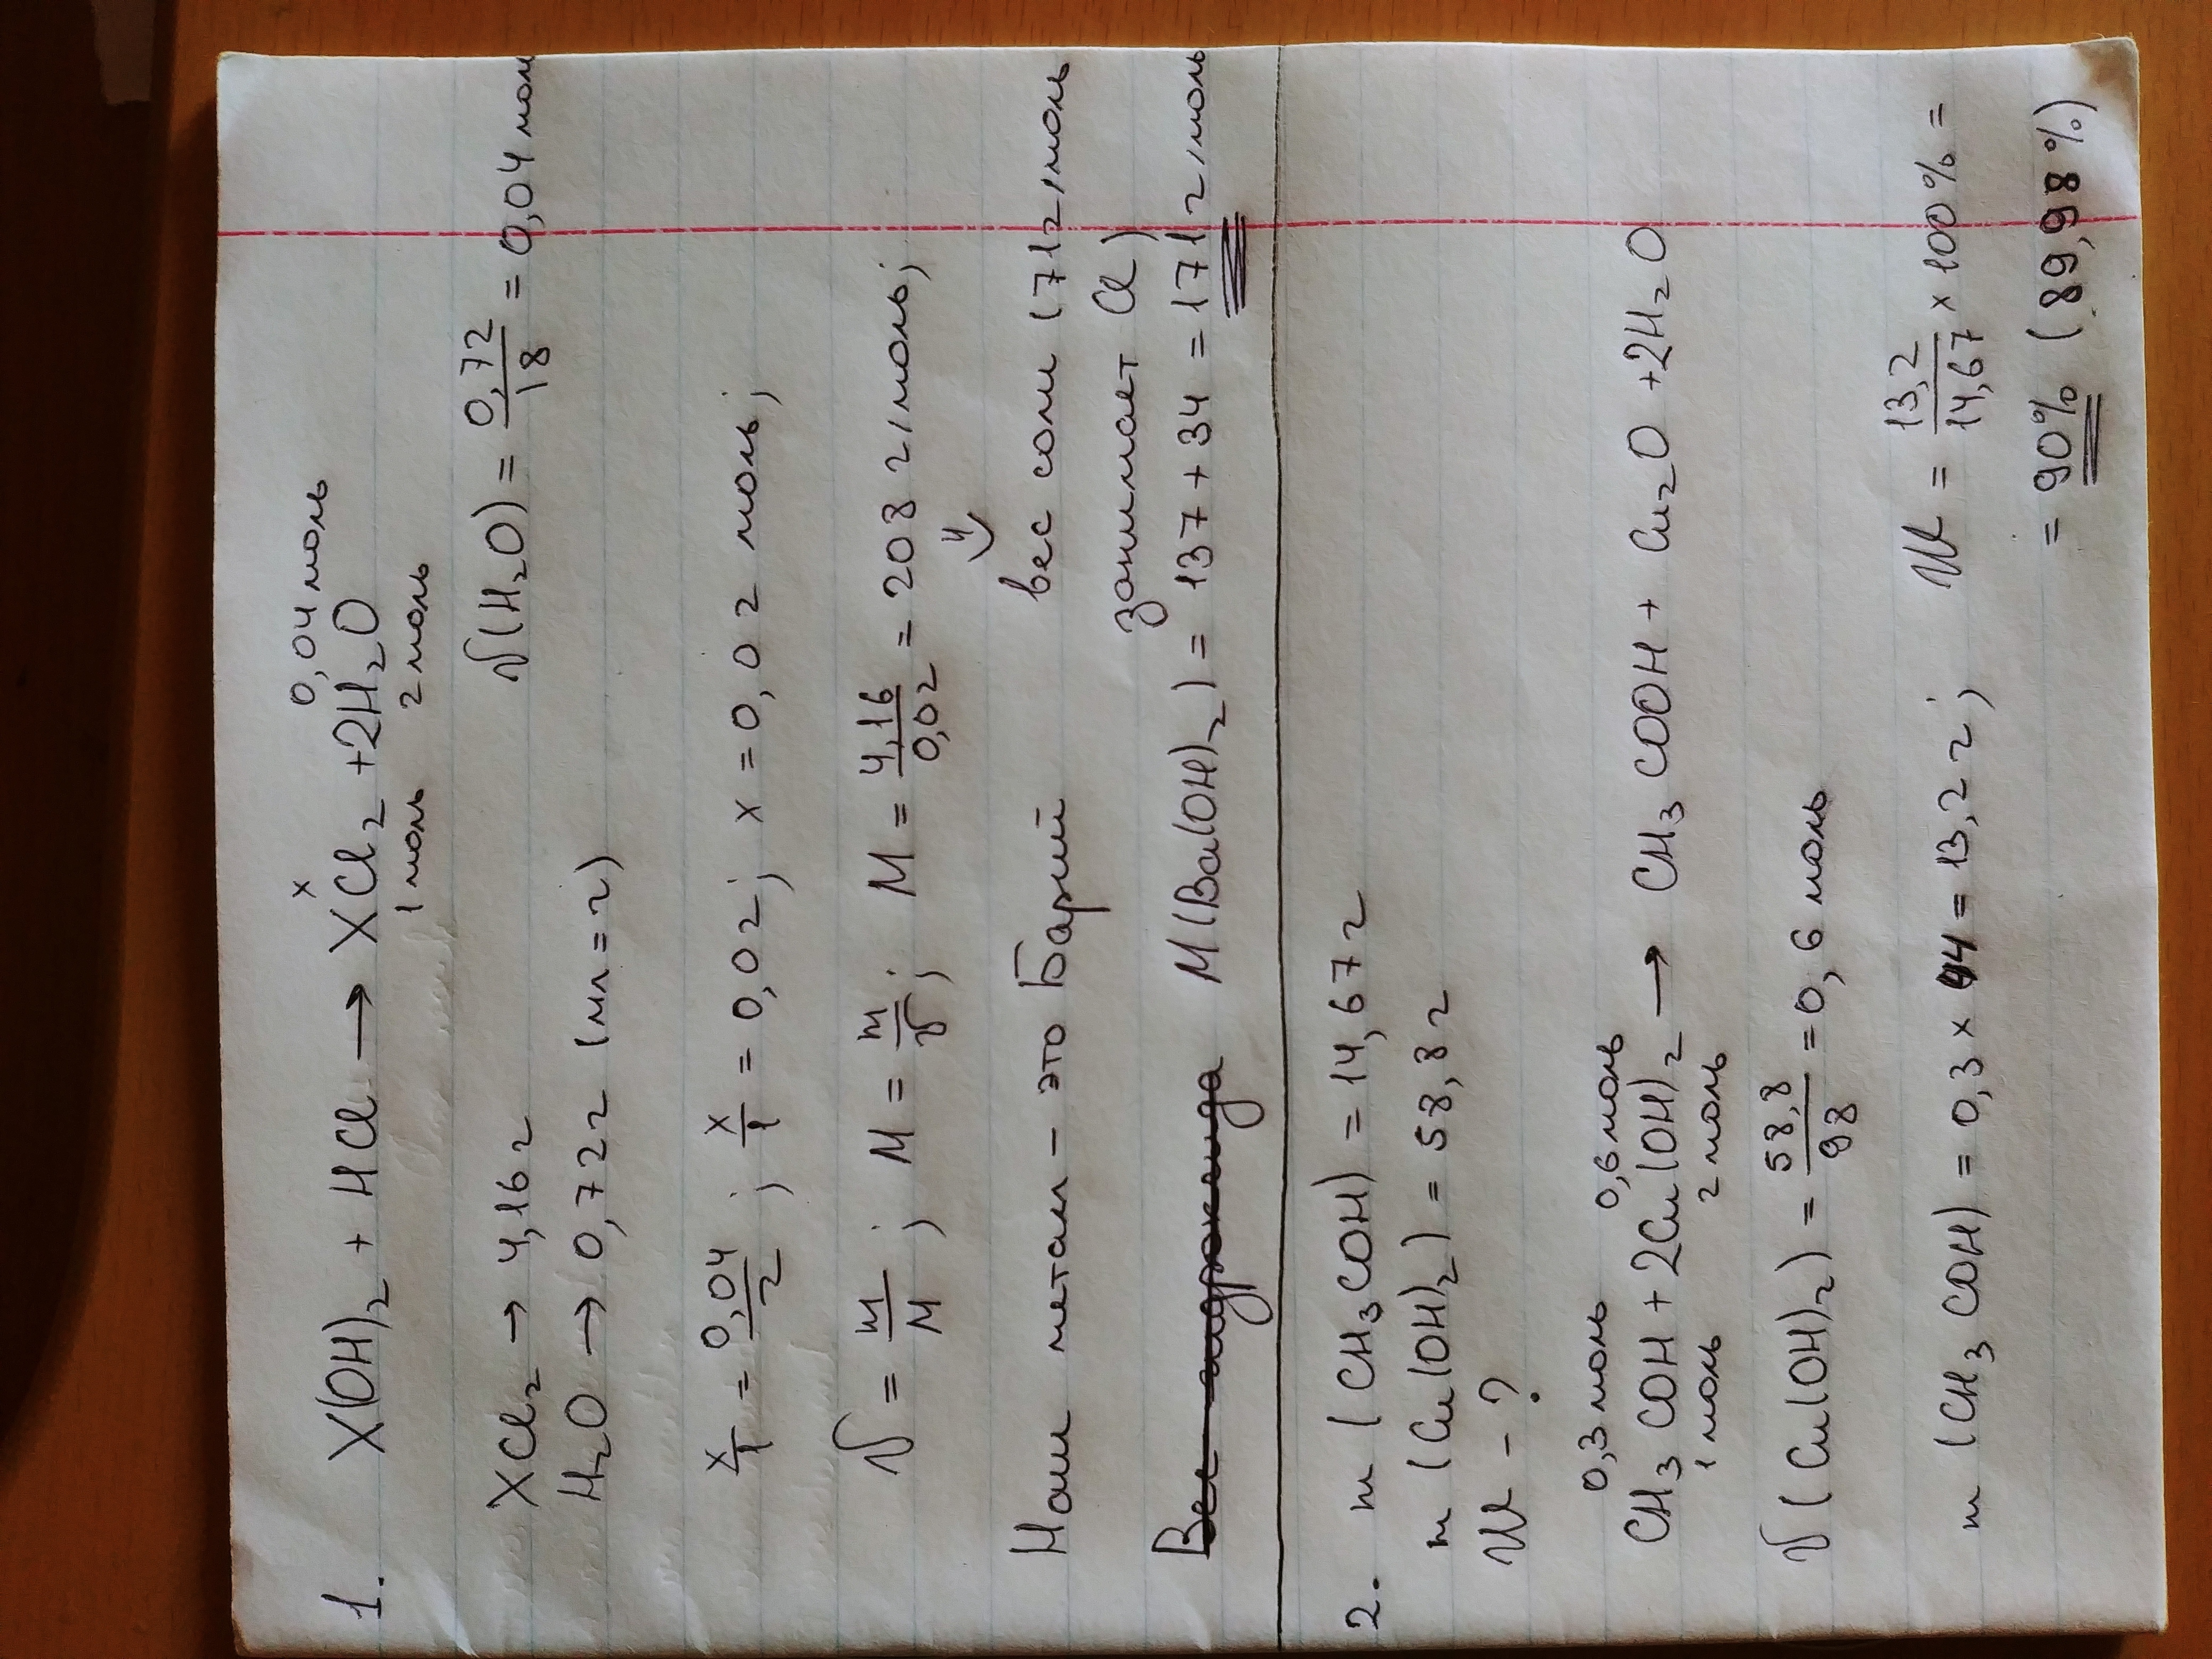 0,04 моль
1. X(OH)₂ + HCl → XCl₂ + 2H₂O
x
1 моль 2 моль
XCl₂ → 4,16 г
ν(H₂O) = 0,72/18 = 0,04 мол
H₂O → 0,72 г (мл = г)
x/1 = 0,04/2 ; x/1 = 0,02 ; x = 0,02 моль ;
ν = m/M ; M = m/ν ; M = 4,16/0,02 = 208 г/моль ;
⇓
Наш метал - это Барий
вес соли (71 г/моль
занимает Cl)
Вес гидроксида M(Ba(OH)₂) = 137 + 34 = 171 г/моль
2. m (CH₃COH) = 14,67 г
m (Cu(OH)₂) = 58,8 г
W - ?
0,3 моль 0,6 моль
CH₃COH + 2Cu(OH)₂ → CH₃COOH + Cu₂O + 2H₂O
1 моль 2 моль
ν (Cu(OH)₂) = 58,8/98 = 0,6 моль
m (CH₃COH) = 0,3 × 44 = 13,2 г ; W = 13,2/14,67 × 100% =
= 90% (89,98%)